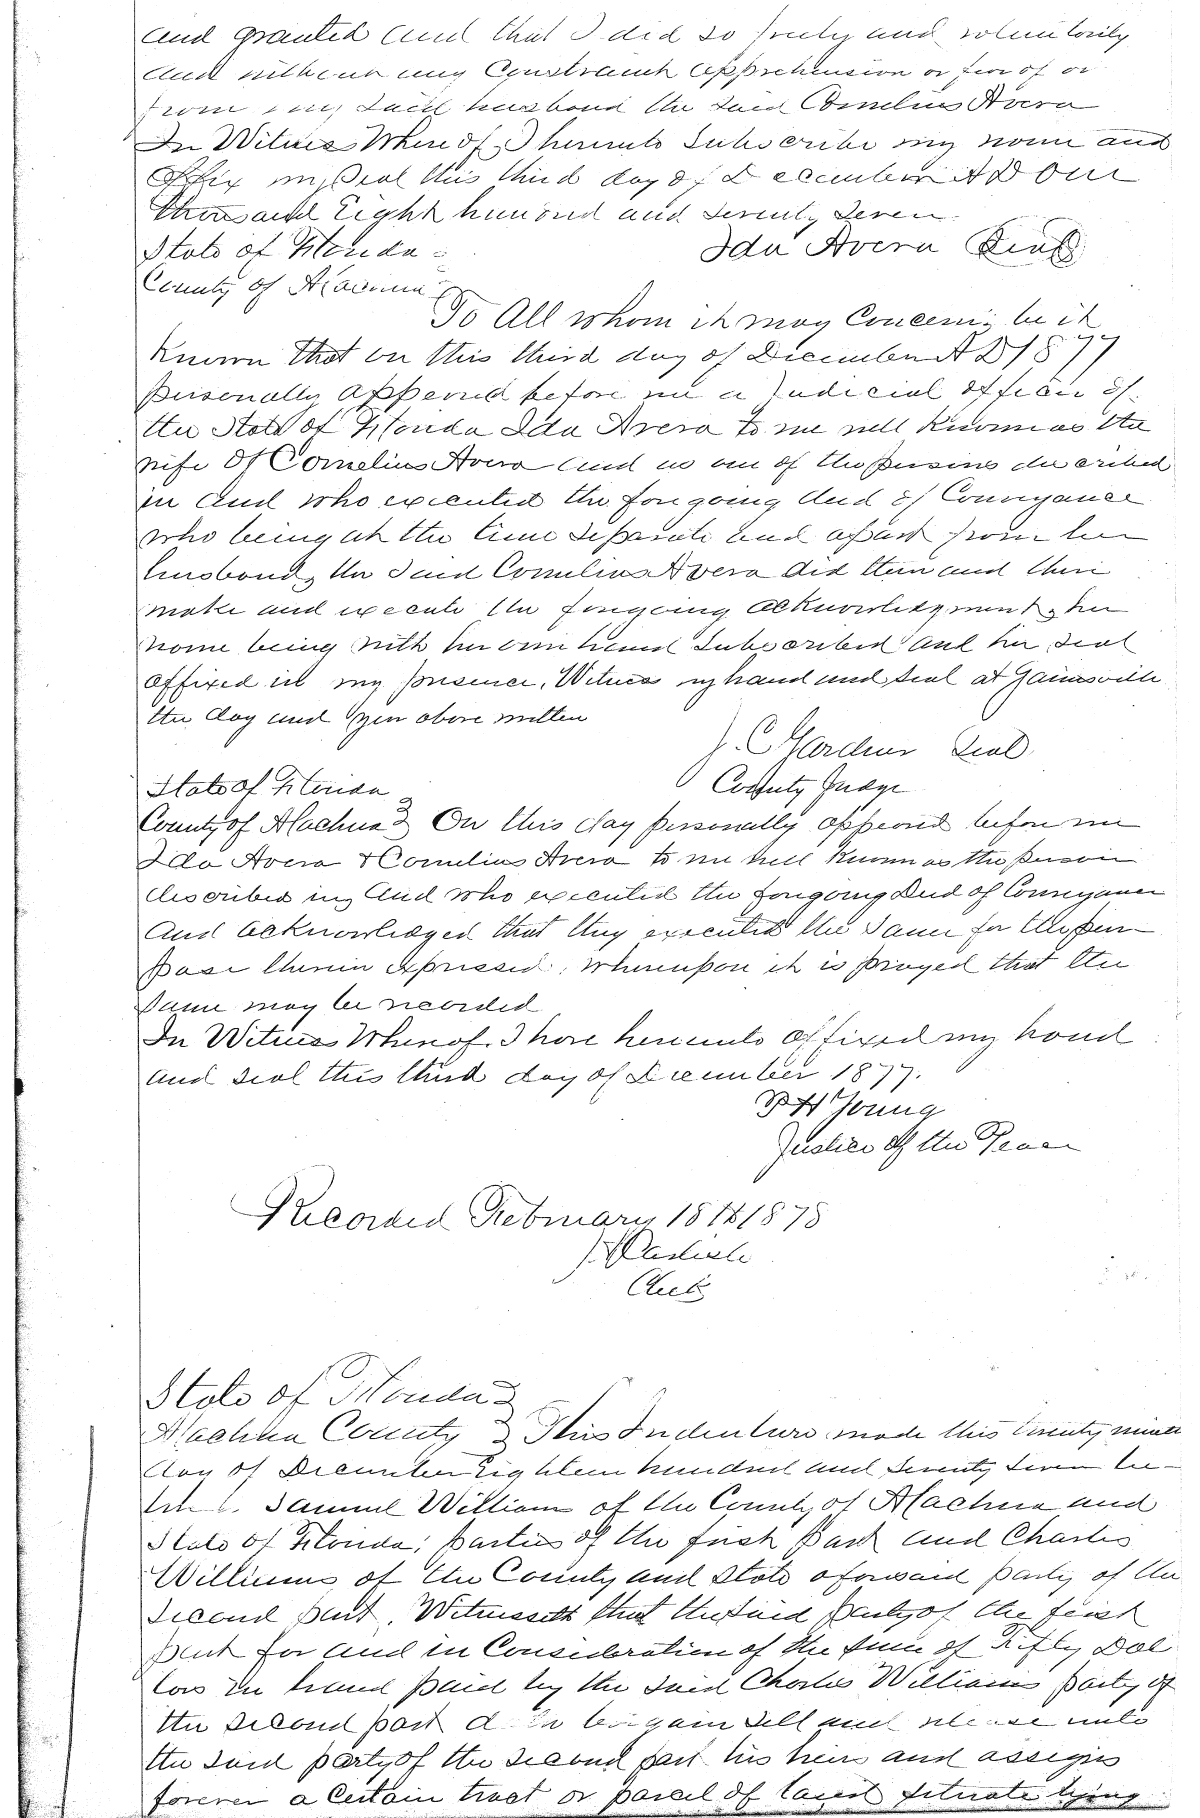 and granted and that I did so freely and voluntarily
and without any Constraint apprehension or fear of or
from my said husband the said Cornelius Avera
In Witness Whereof, I hereunto Subscribe my name and
Affix my Seal this third day of December A D One
thousand Eight hundred and Seventy Seven.
State of Florida Ida Avera Seal
County of Alachua
To All whom it may Concern; be it
Known that on this third day of December A D 1877
personally appeared before me a Judicial officer of
the State of Florida Ida Avera to me well Known as the
wife of Cornelius Avera and as one of the persons described
in and who executed the foregoing deed of Conveyance
who being at the time separate and apart from her
husband, the said Cornelius Avera did then and there
make and execute the foregoing acknowledgment, her
name being with her own hand Subscribed and her seal
affixed in my presence, Witness my hand and seal at Gainesville
the day and year above written
J. C Gardner Seal
County Judge
State of Florida
County of Alachua } On this day personally appeared before me
Ida Avera & Cornelius Avera to me well Known as the person
described in, and who executed the foregoing Deed of Conveyance
And acknowledged that they executed the same for the pur-
pose therein expressed, whereupon it is prayed that the
same may be recorded
In Witness Whereof. I have hereunto affixed my hand
and seal this third day of December 1877.
H Young
Justice of the Peace
Recorded February 18th 1878
Clerk
State of Florida }
Alachua County } This Indenture made this twenty ninth
day of December Eighteen hundred and Seventy Seven be-
Samuel William of the County of Alachua and
State of Florida; parties of the first part and Charles
Williams of the County and State aforesaid party of the
second part, Witnesseth that the said party of the first
part for and in Consideration of the sum of Fifty Dol
lars in hand paid by the said Charles Williams party of
the second part bargain sell and release unto
the said party of the second part his heirs and assigns
forever a Certain tract or parcel of land situate lying